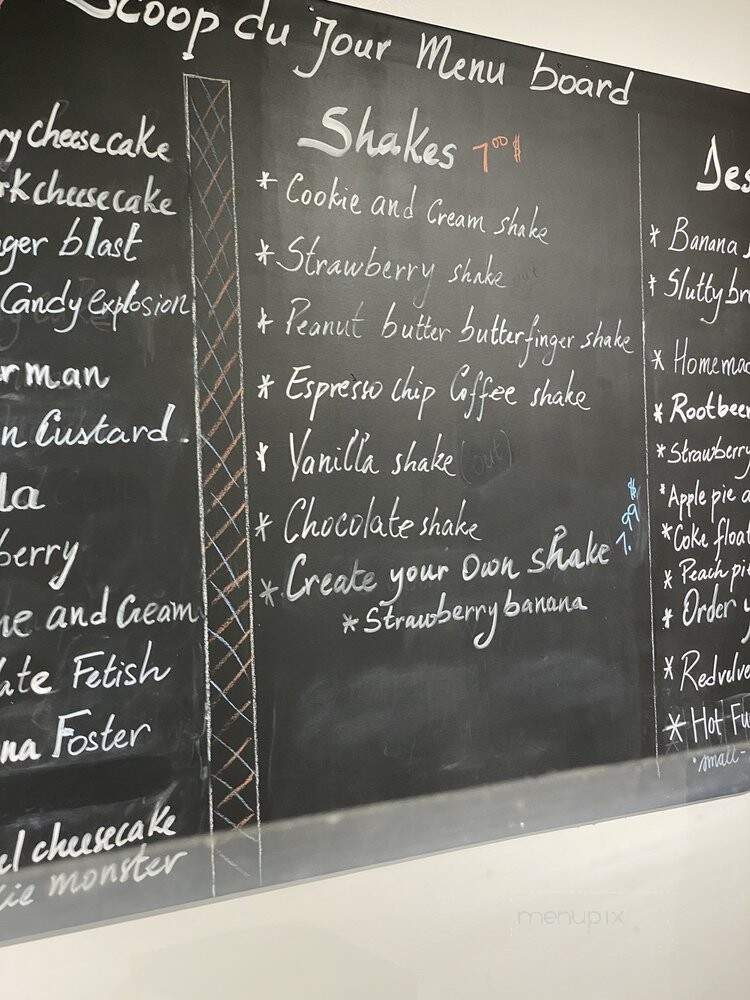 Scoop du Jour Menu board
ry cheesecake
rk cheesecake
ger blast
Candy Explosion
rman
n Custard.
la
berry
ne and Cream
ate Fetish
na Foster
el cheesecake
kie monster
Shakes 7.00 $
* Cookie and Cream shake
* Strawberry shake out
* Peanut butter butterfinger shake
* Espresso chip Coffee shake
* Vanilla shake (out)
* Chocolate shake
* Create your Own shake 7.99 $
* Strawberry banana
Des
* Banana s
* Slutty br
* Homemad
* Rootbeer
* Strawberry
* Apple pie a
* Coke float
* Peach pi
* Order
* Redvelve
* Hot Fu
small-
menupix